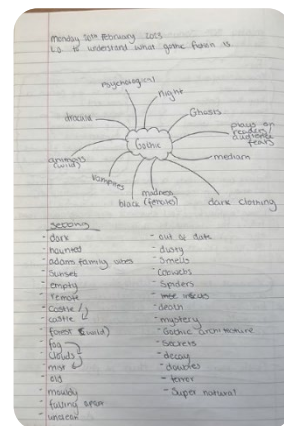 Monday 20th February 2023
L.O to understand what gothic fiction is
psychological
night
dracula
Ghosts
preys on
readers/
audience
fears
Gothic
medium
animals
(wild)
Vampires
madness
black (female)
dark clothing
Setting
- dark
- haunted
- adams family
- sunset
- empty
- remote
- castle
- castle
- forest (wild)
- fog
- clouds
- mist
- old
- mouldy
- falling apart
- unclean
- out of date
- dusty
- smells
- cobwebs
- Spiders
- death
- mystery
- Gothic architecture
- Secrets
- decay
- doubles
- terror
- Super natural